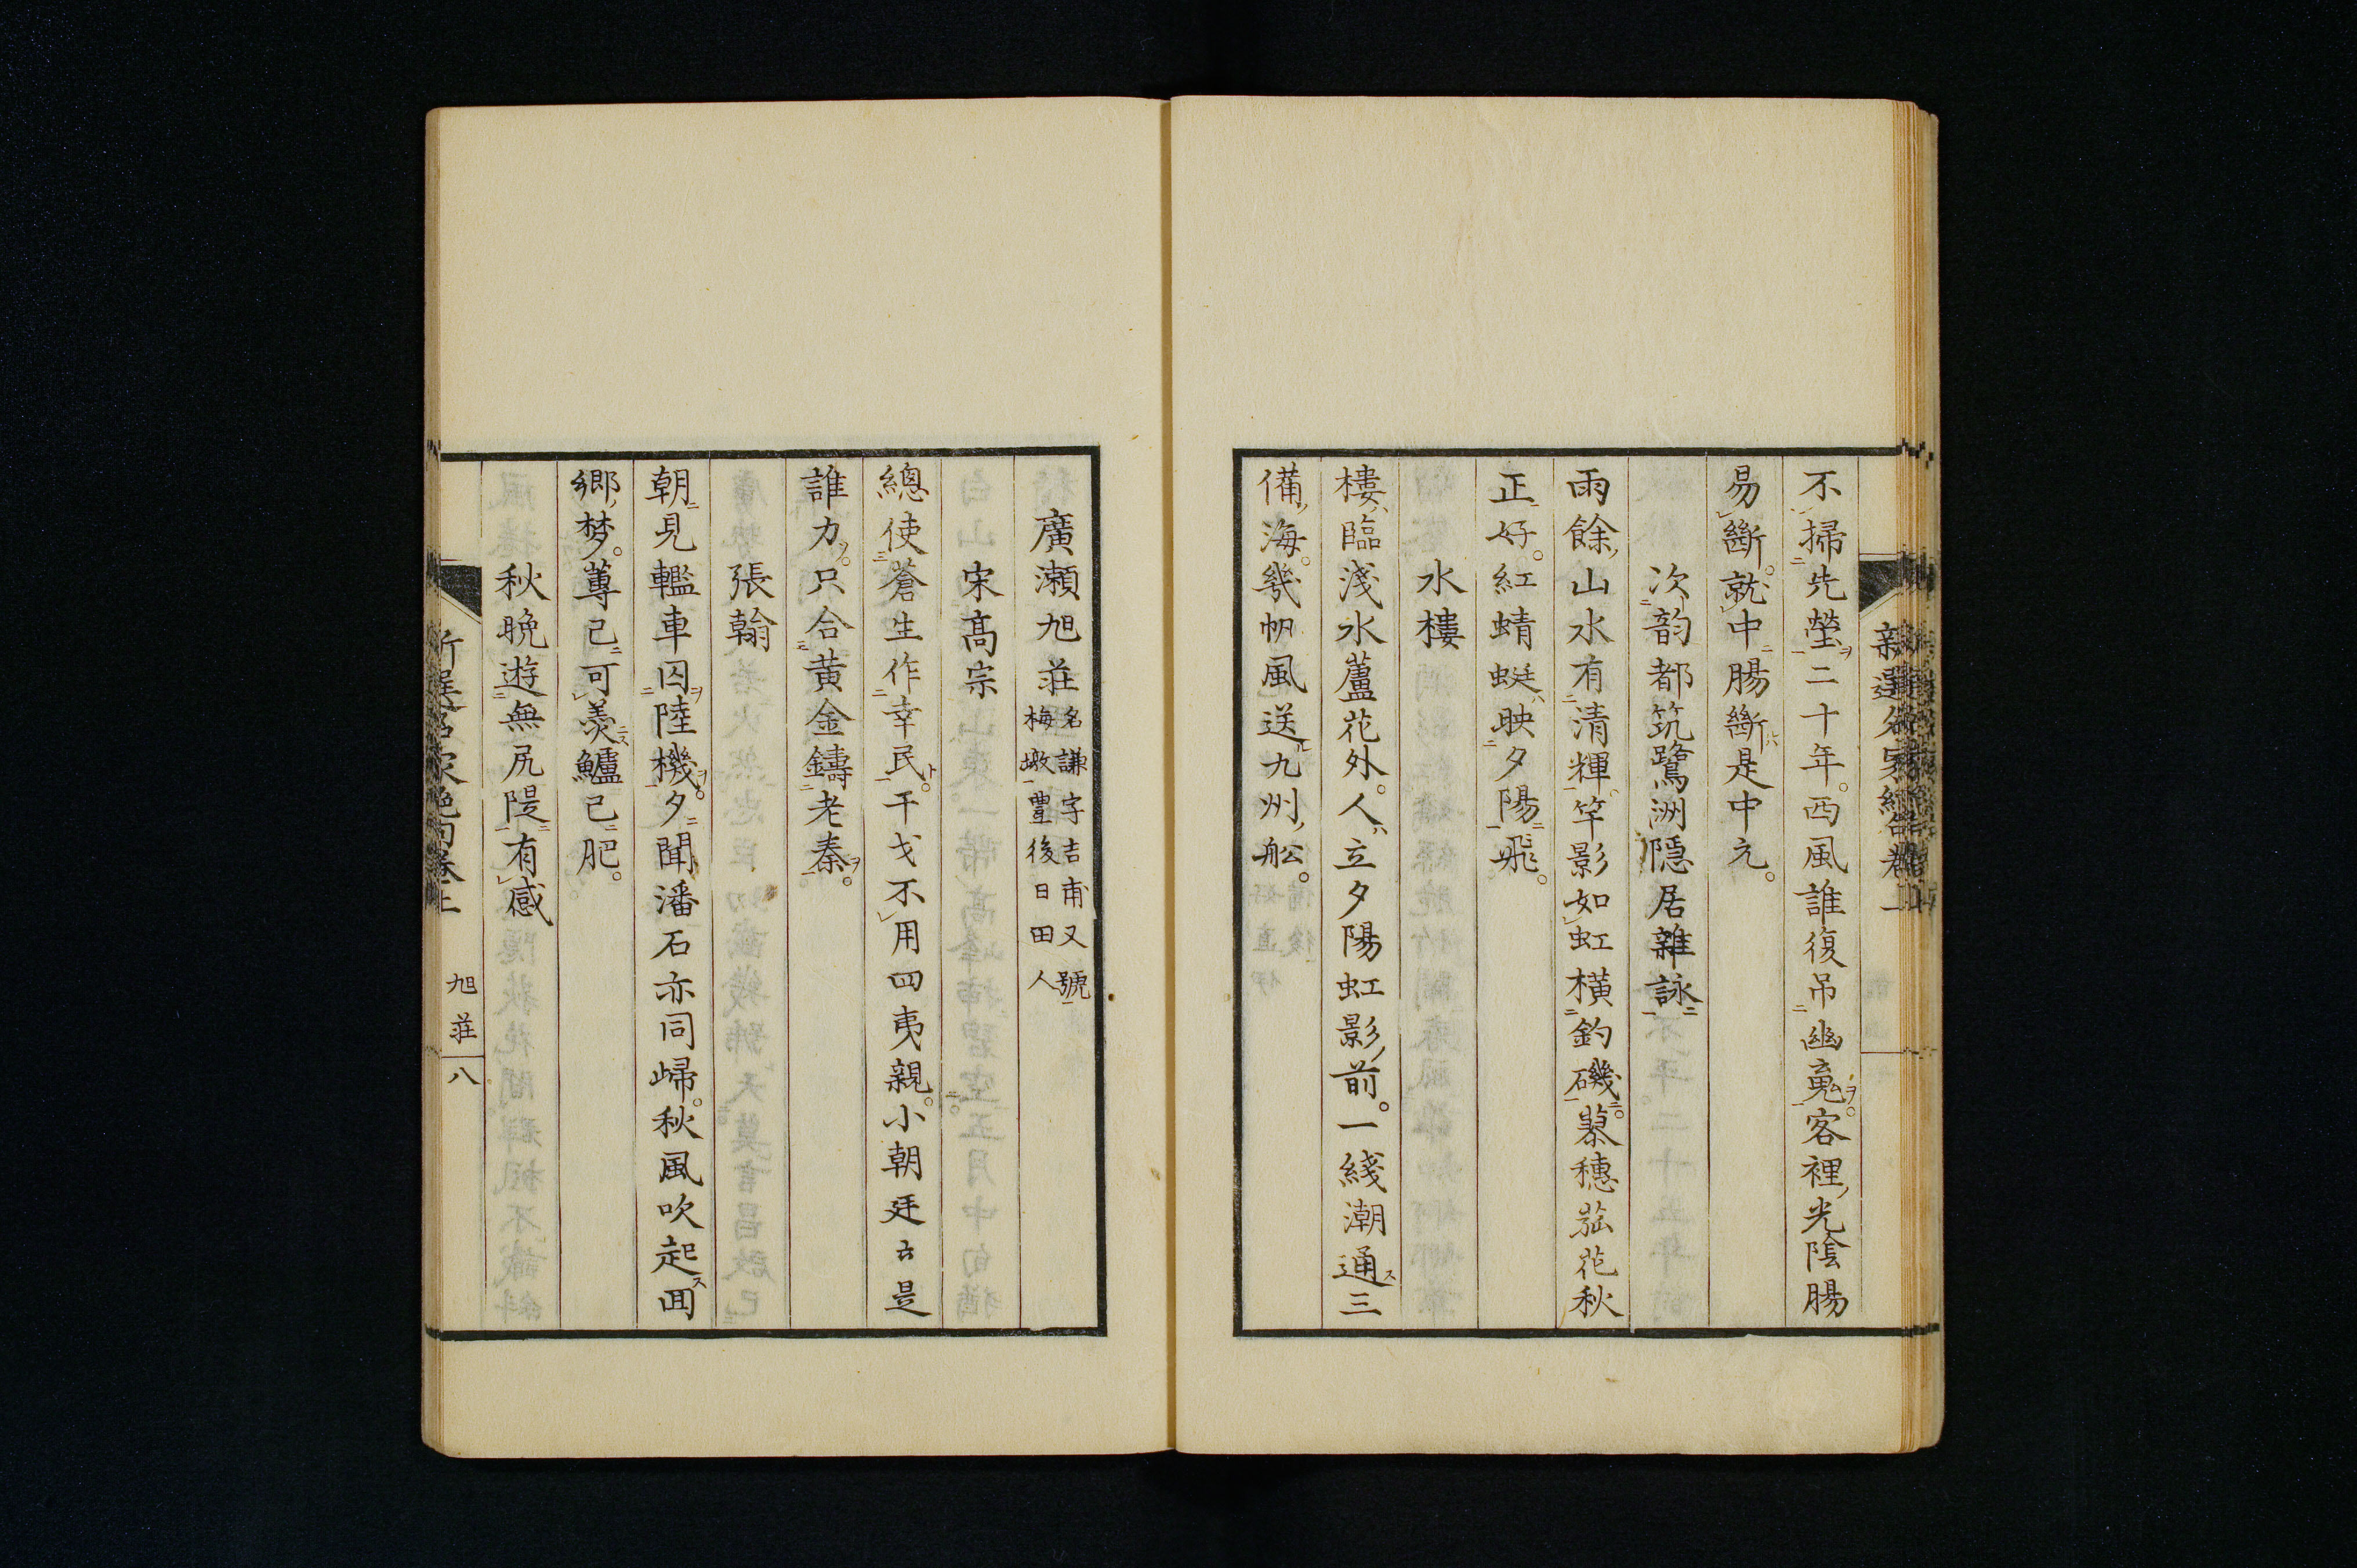 不掃先塋二十年。西風誰復吊幽竟。客裡光陰腸
易斷。就中腸斷是中元。
次韵都筑鷺洲隠居雜詠
雨餘山水有清輝。竿影如虹橫釣磯。蓼穗菰花秋
正好。紅蜻蜓映夕陽飛。
水樓
樓臨淺水蘆花外。人立夕陽虹影前。一綫潮通三
備海。幾帆風送九州舩。
廣瀨旭荘 名謙字吉甫又號
梅墩豊後日田人
宋髙宗
總使蒼生作幸民。干戈不用四夷親。小朝廷亦是
誰力。只合黄金鑄老秦。
張翰
朝見轞車囚陸機。夕聞潘石亦同歸。秋風吹起囬
鄉夢。蓴已可羮鱸已肥。
秋晩遊無尻隄有感
旭荘 八